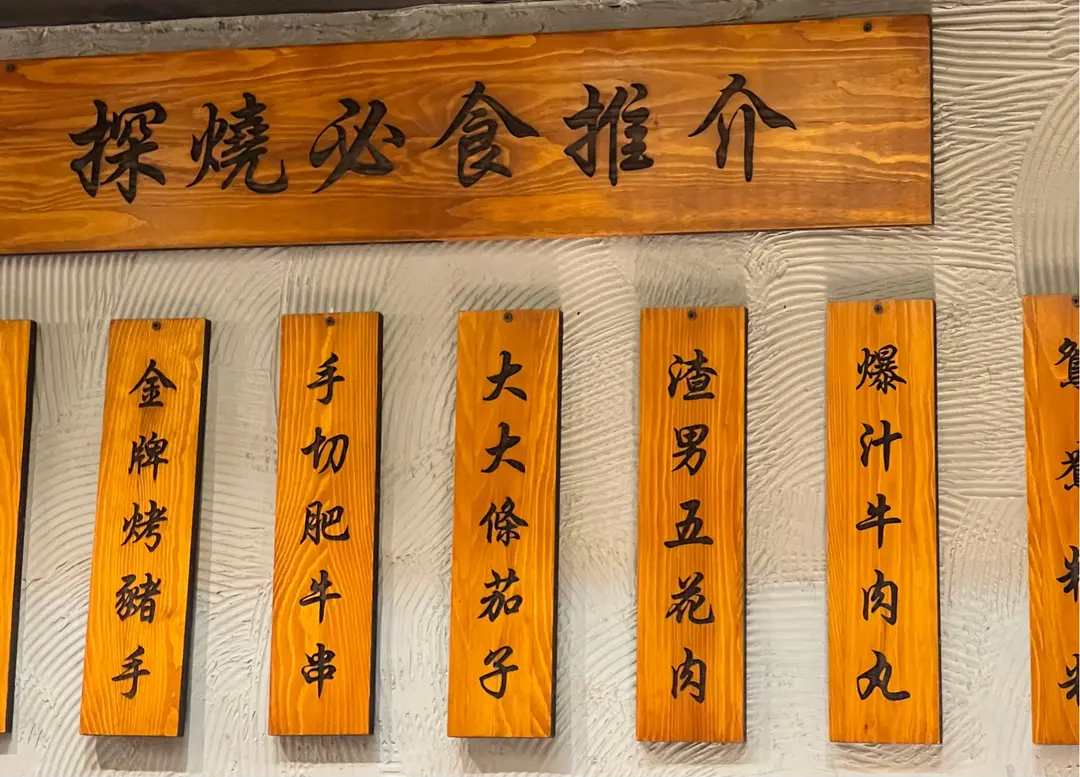 探燒必食推介
金牌烤豬手
手切肥牛串
大大條茄子
渣男五花肉
爆汁牛肉丸